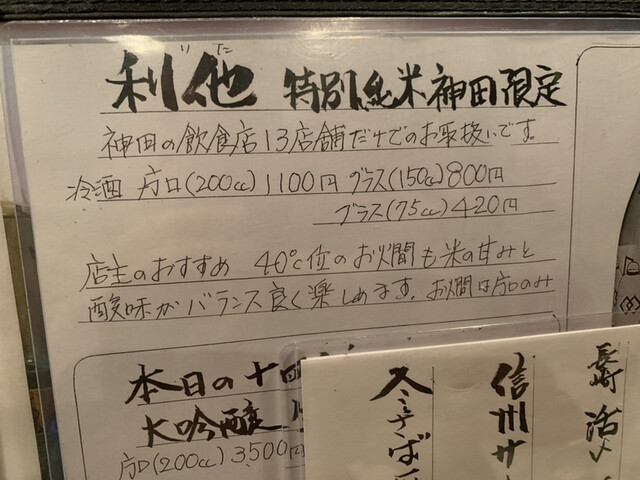 りた
利他 特別純米神田限定
神田の飲食店13店舗だけでのお取扱いです。
冷酒 片口(200cc)1100円 グラス(150cc)800円
グラス(75cc)420円
店主のおすすめ 40℃位のお燗も米の甘みと
酸味がバランス良く楽しめます。お燗は片口のみ
本日の十四
大吟醸
片口(200cc)3500円
冬そば
信州サ
長崎 活〆